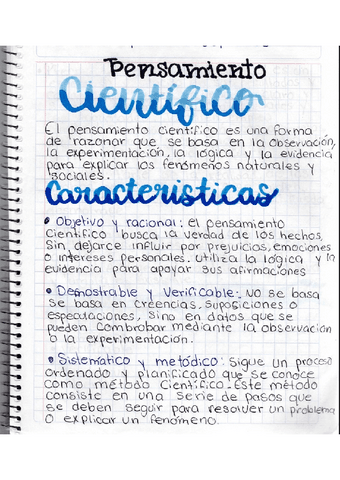 Pensamiento
Científico
El pensamiento científico es una forma
de razonar que se basa en la observación,
la experimentación, la lógica y la evidencia
para explicar los fenómenos naturales y
sociales.
Características
• Objetivo y racional: el pensamiento
científico busca la verdad de los hechos,
Sin dejarce influir por prejuicios, emociones
o intereses personales. utiliza la lógica y la
evidencia para apoyar sus afirmaciones
• Demostrable y Verificable: No se basa
se basa en creencias, suposiciones o
especulaciones, sino en datos que se
pueden combrobar mediante la observación
o la experimentación.
• Sistemático y metódico: Sigue un proceso
ordenado y planificado que se conoce
como método científico. Este método
consiste en una serie de pasos que
se deben seguir para resolver un problema
o explicar un fenómeno.